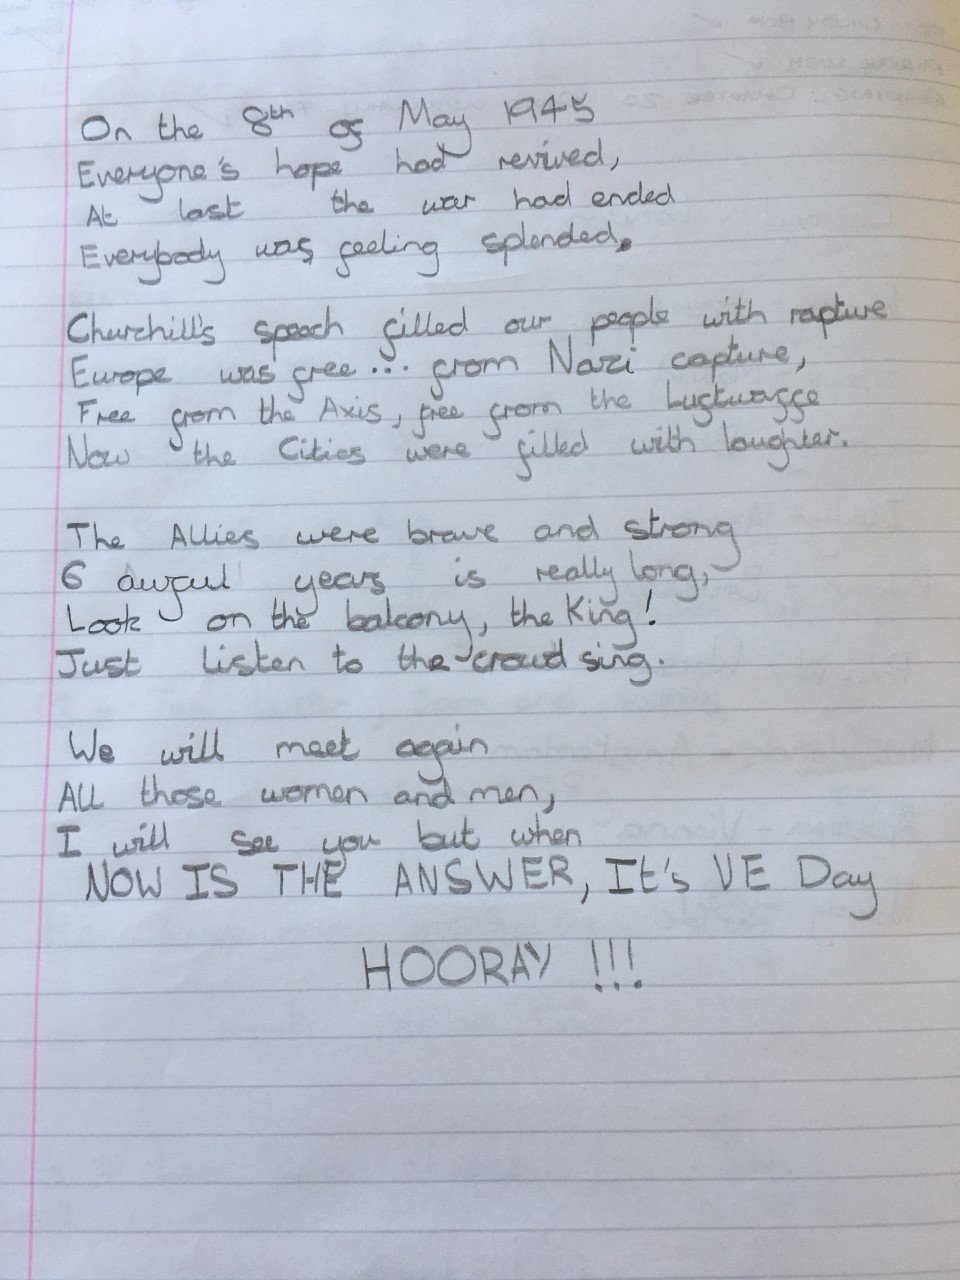 On the 8th of May 1945
Everyone's hope had revived,
At last the war had ended
Everybody was feeling splended.
Churchill's speech filled our people with rapture
Europe was free... from Nazi capture,
Free from the Axis, free from the Luftwaffe
Now the Cities were filled with laughter.
The Allies were brave and strong
6 awful years is really long,
Look on the balcony, the King!
Just listen to the crowd sing.
We will meet again
All those women and men,
I will see you but when
NOW IS THE ANSWER, It's VE Day
HOORAY !!!